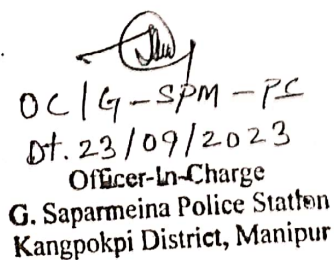 OC/G-SPM-PS
Dt. 23/09/2023
Officer-In-Charge
G. Saparmeina Police Station
Kangpokpi District, Manipur